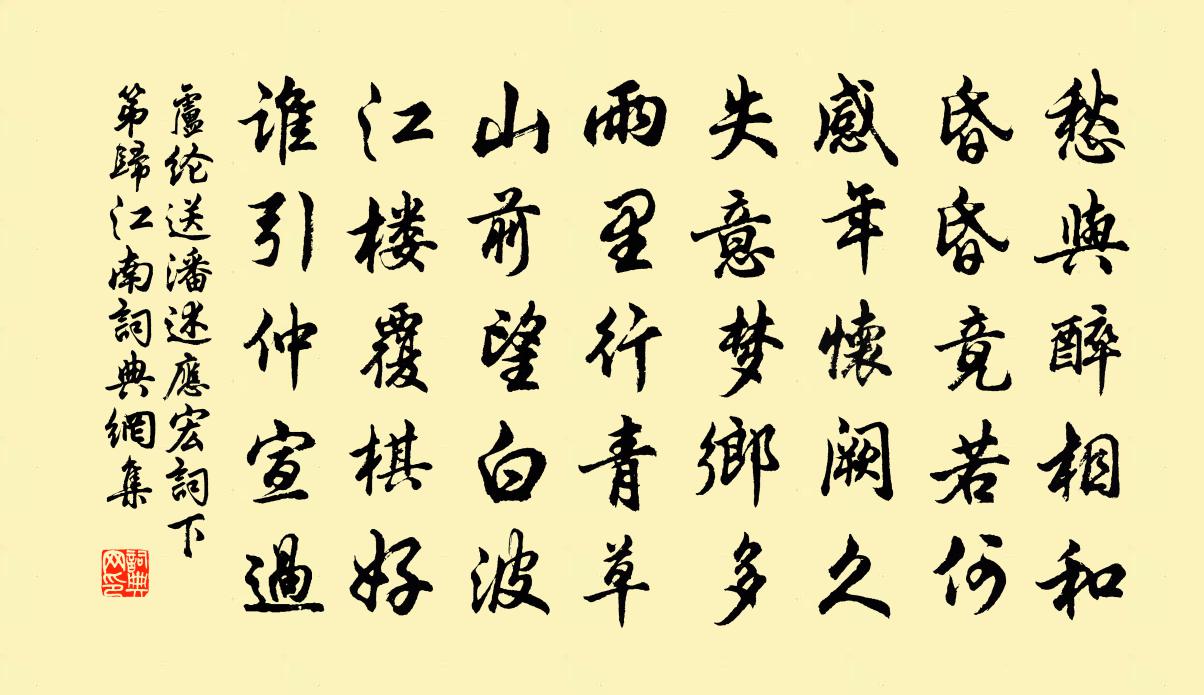 愁與醉相和
昏昏竟若何
感年懷闕久
失意梦鄉多
雨里行青草
山前望白波
江楼覆棋好
誰引仲宣過
盧纶送潘述應宏詞下
第歸江南詞典網集
詞典
网印